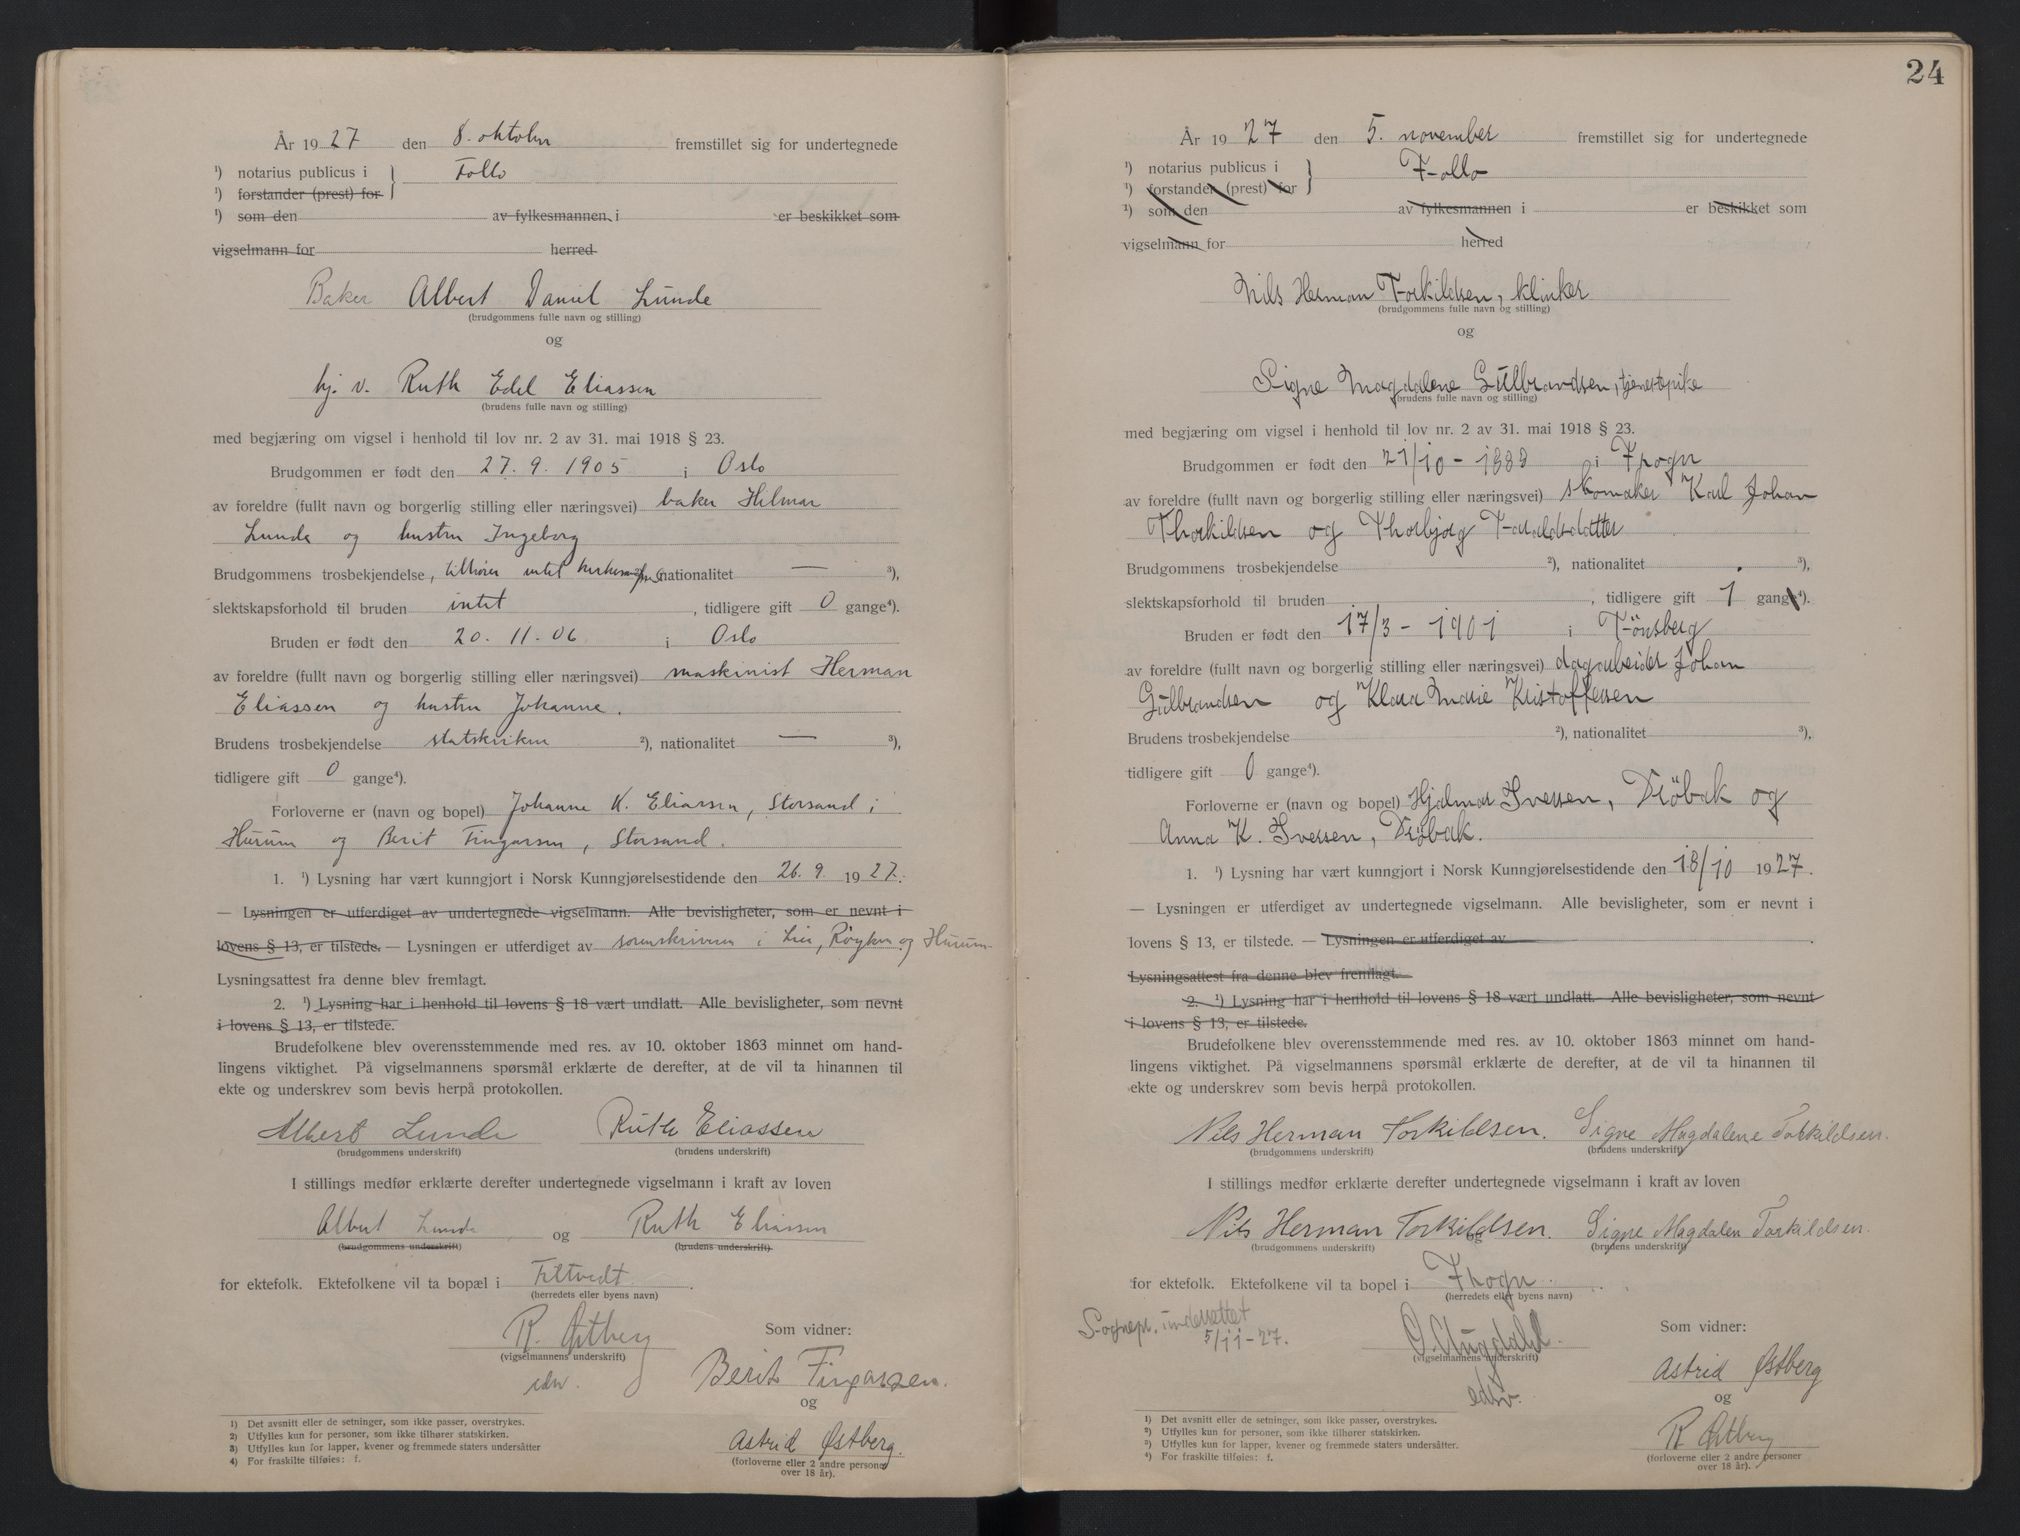 År 1927 den 8. oktober fremstillet sig for undertegnede
¹) notarius publicus i } Follo
¹) forstander (prest) for
¹) som den av fylkesmannen i er beskikket som
vigselmann for herred
Baker Albert Daniel Lunde
(brudgommens fulle navn og stilling)
og
hj. v. Ruth Edel Eliassen
(brudens fulle navn og stilling)
med begjæring om vigsel i henhold til lov nr. 2 av 31. mai 1918 § 23.
Brudgommen er født den 27. 9. 1905 i Oslo
av foreldre (fullt navn og borgerlig stilling eller næringsvei) baker Hilmar
Lunde og hustru Ingeborg
Brudgommens trosbekjendelse, tilhører intet kirkesamfund nationalitet — ³),
slektskapsforhold til bruden intet, tidligere gift 0 gange⁴).
Bruden er født den 20. 11. 06 i Oslo
av foreldre (fullt navn og borgerlig stilling eller næringsvei) maskinist Herman
Eliassen og hustru Johanne.
Brudens trosbekjendelse statskirken ²), nationalitet — ³),
tidligere gift 0 gange⁴).
Forloverne er (navn og bopel) Johanne K. Eliassen, Storsand i
Hurum og Berit Fingarsen, Storsand.
1. ¹) Lysning har vært kunngjort i Norsk Kunngjørelsestidende den 26. 9. 1927.
— Lysningen er utferdiget av undertegnede vigselmann. Alle bevisligheter, som er nevnt i
lovens § 13, er tilstede. — Lysningen er utferdiget av sorenskriveren i Lier, Røyken og Hurum-
Lysningsattest fra denne blev fremlagt.
2. ¹) Lysning har i henhold til lovens § 18 vært undlatt. Alle bevisligheter, som nevnt
i lovens § 13, er tilstede.
Brudefolkene blev overensstemmende med res. av 10. oktober 1863 minnet om hand-
lingens viktighet. På vigselmannens spørsmål erklærte de derefter, at de vil ta hinannen til
ekte og underskrev som bevis herpå protokollen.
Albert Lunde Ruth Eliassen
(brudgommens underskrift) (brudens underskrift)
I stillings medfør erklærte derefter undertegnede vigselmann i kraft av loven
Albert Lunde og Ruth Eliassen
(brudgommens underskrift) (brudens underskrift).
for ektefolk. Ektefolkene vil ta bopæl i Filtvedt.
(herredets eller byens navn)
R. Østberg Som vidner:
(vigselmannens underskrift)
edsv. Berit Fingarsen.
og
Astrid Østberg.
(forloverne eller 2 andre personer
over 18 år).
1) Det avsnitt eller de setninger, som ikke passer, overstrykes.
2) Utfylles kun for personer, som ikke tilhører statskirken.
3) Utfylles kun for lapper, kvener og fremmede staters undersåtter
4) For fraskilte tilføies: f.
24
År 1927 den 5. november fremstillet sig for undertegnede
¹) notarius publicus i } Follo
¹) forstander (prest) for
¹) som den av fylkesmannen i er beskikket som
vigselmann for herred
Nils Herman Torkildsen, klinker
(brudgommens fulle navn og stilling)
og
Signe Magdalene Gulbrandsen, tjenestepike
(brudens fulle navn og stilling)
med begjæring om vigsel i henhold til lov nr. 2 av 31. mai 1918 § 23.
Brudgommen er født den 21/10 - 1888 i Frogn
av foreldre (fullt navn og borgerlig stilling eller næringsvei) skomaker Karl Johan
Thorkildsen og Thorbjørg Taraldsdatter
Brudgommens trosbekjendelse ²), nationalitet ³),
slektskapsforhold til bruden, tidligere gift 1 gange⁴).
Bruden er født den 17/3 - 1901 i Tönsberg
av foreldre (fullt navn og borgerlig stilling eller næringsvei) dagarbeider Johan
Gulbrandsen og Klara Marie Kristoffersen
Brudens trosbekjendelse ²), nationalitet ³),
tidligere gift 0 gange⁴).
Forloverne er (navn og bopel) Hjalmar Iversen, Dröbak og
Anna K. Iversen, Dröbak.
1. ¹) Lysning har vært kunngjort i Norsk Kunngjørelsestidende den 18/10 1927.
— Lysningen er utferdiget av undertegnede vigselmann. Alle bevisligheter, som er nevnt i
lovens § 13, er tilstede. — Lysningen er utferdiget av
Lysningsattest fra denne blev fremlagt.
2. ¹) Lysning har i henhold til lovens § 18 vært undlatt. Alle bevisligheter, som nevnt
i lovens § 13, er tilstede.
Brudefolkene blev overensstemmende med res. av 10. oktober 1863 minnet om hand-
lingens viktighet. På vigselmannens spørsmål erklærte de derefter, at de vil ta hinannen til
ekte og underskrev som bevis herpå protokollen.
Nils Herman Torkildsen. Signe Magdalene Torkildsen.
(brudgommens underskrift) (brudens underskrift)
I stillings medfør erklærte derefter undertegnede vigselmann i kraft av loven
Nils Herman Torkildsen. og Signe Magdalen Torkildsen.
(brudgommens underskrift) (brudens underskrift)
for ektefolk. Ektefolkene vil ta bopel i Frogn.
(herredets eller byens navn)
Sognepr. underrettet
5/11-27.
O. Augdahl. Som vidner:
(vigselmannens underskrift)
edsv. Astrid Østberg
og
R Østberg
(forloverne eller 2 andre personer
over 18 år).
¹) Det avsnitt eller de setninger, som ikke passer, overstrykes.
²) Utfylles kun for personer, som ikke tilhører statskirken.
³) Utfylles kun for lapper, kvener og fremmede staters undersåtter.
⁴) For fraskilte tilføies: f.